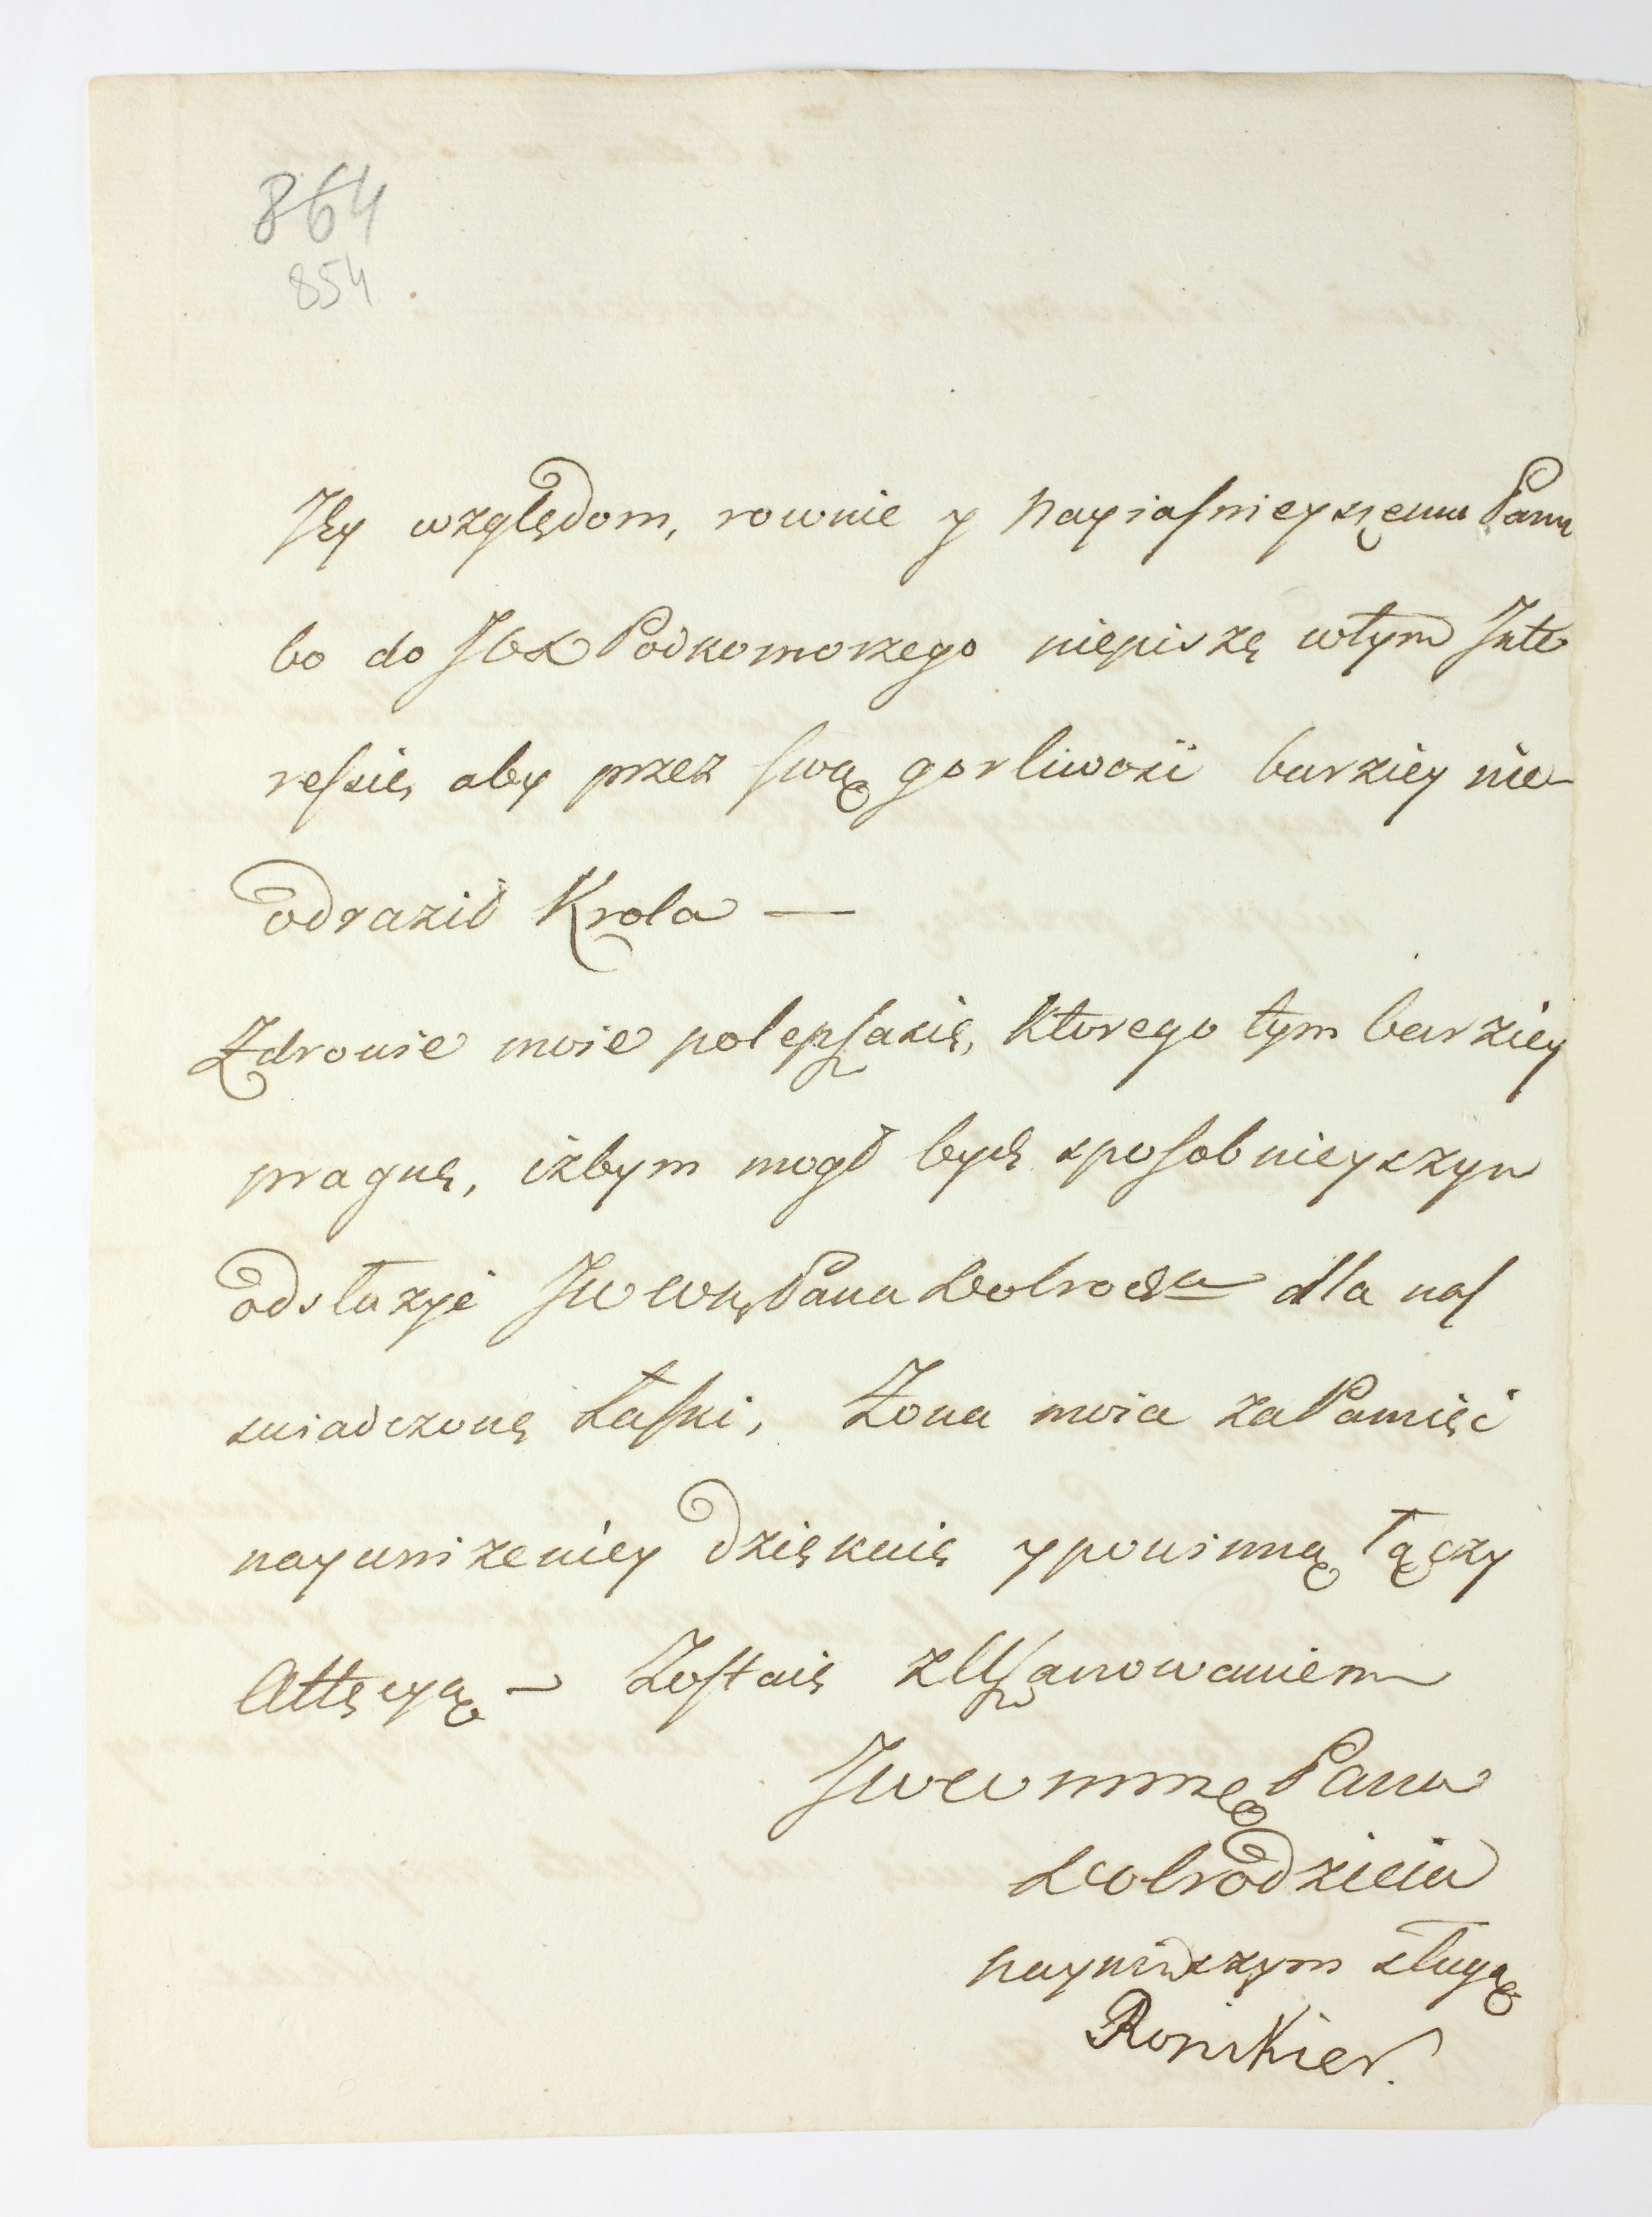 864
854
Jey względom, rownie y Nayiasnieyszemu Panu
bo do Podkomorzego niepiszę wtym Inte
ressie, aby przez swą gorliwość barziey nie
odraził Krola —
Zdrowie moie polepsza się, ktorego tym barziey
pragnę, iżbym mogł bydź sposobnieyszym
odsłużyć JWWgo Pana Dobrodza dla nas
swiadczone Łaski, Żona moia za Pamięć
nayunizeniey dziękuię y powinną łączy
Attęcyą — Zostaię z Uszanowaniem
Pana
Dobrodzieia
nayniższym sługą
Ronikier.